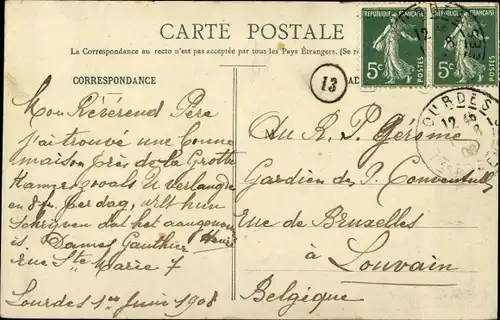 CARTE POSTALE
La Correspondance au recto n'est pas acceptée par tous les Pays Étrangers. (Se
CORRESPONDANCE
AD
13
RÉPUBLIQUE FRANÇAISE
5c
POSTES
RÉPUBLIQUE FRANÇAISE
5c
POSTES
LOURDES
Mon Révérend Père
j'ai trouvé une bonne
maison près de la Grotte
Kamer zooals U verlangde
en 8 fr per dag, wilt hun
schrijven dat het aangenomen
is. Dames Gauthier
Rue Ste Marie 7
Lourdes 1er Juin 1908
Au R. P. Gérome
Gardien des P. Conventuels
Rue de Bruxelles
à
Louvain
Belgique